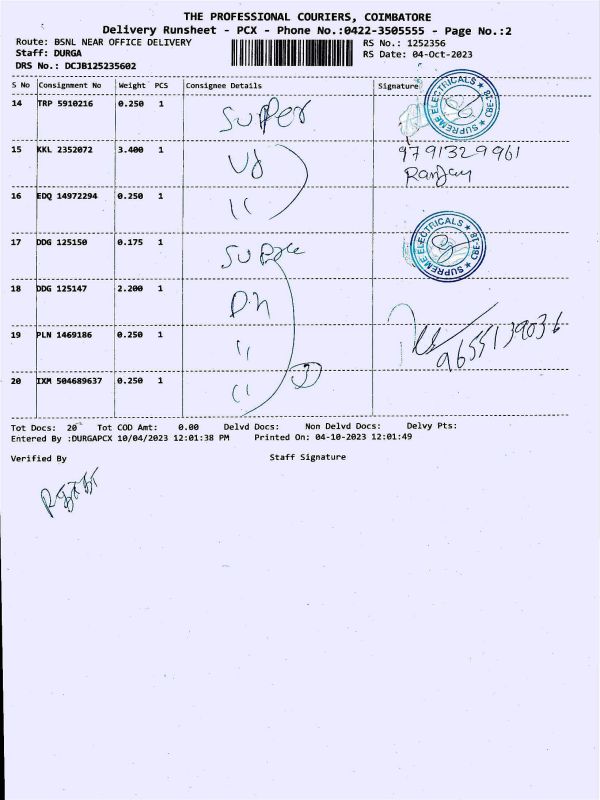 THE PROFESSIONAL COURIERS, COIMBATORE
Delivery Runsheet - PCX - Phone No.:0422-3505555 - Page No.:2
Route: BSNL NEAR OFFICE DELIVERY RS No.: 1252356
Staff: DURGA RS Date: 04-Oct-2023
DRS No.: DCJB125235602
S No Consignment No Weight PCS Consignee Details Signature
14 TRP 5910216 0.250 1 Super
SUPREME ELECTRICALS ★ CBE-18 ★
15 KKL 2352072 3.400 1 9791329961
Ranjay
16 EDQ 14972294 0.250 1 "
17 DDG 125150 0.175 1
SUPREME ELECTRICALS ★ CBE-18 ★
18 DDG 125147 2.200 1
19 PLN 1469186 0.250 1 " 9655139036
20 IXM 504689637 0.250 1 "
Tot Docs: 20 Tot COD Amt: 0.00 Delvd Docs: Non Delvd Docs: Delvy Pts:
Entered By :DURGAPCX 10/04/2023 12:01:38 PM Printed On: 04-10-2023 12:01:49
Verified By Staff Signature